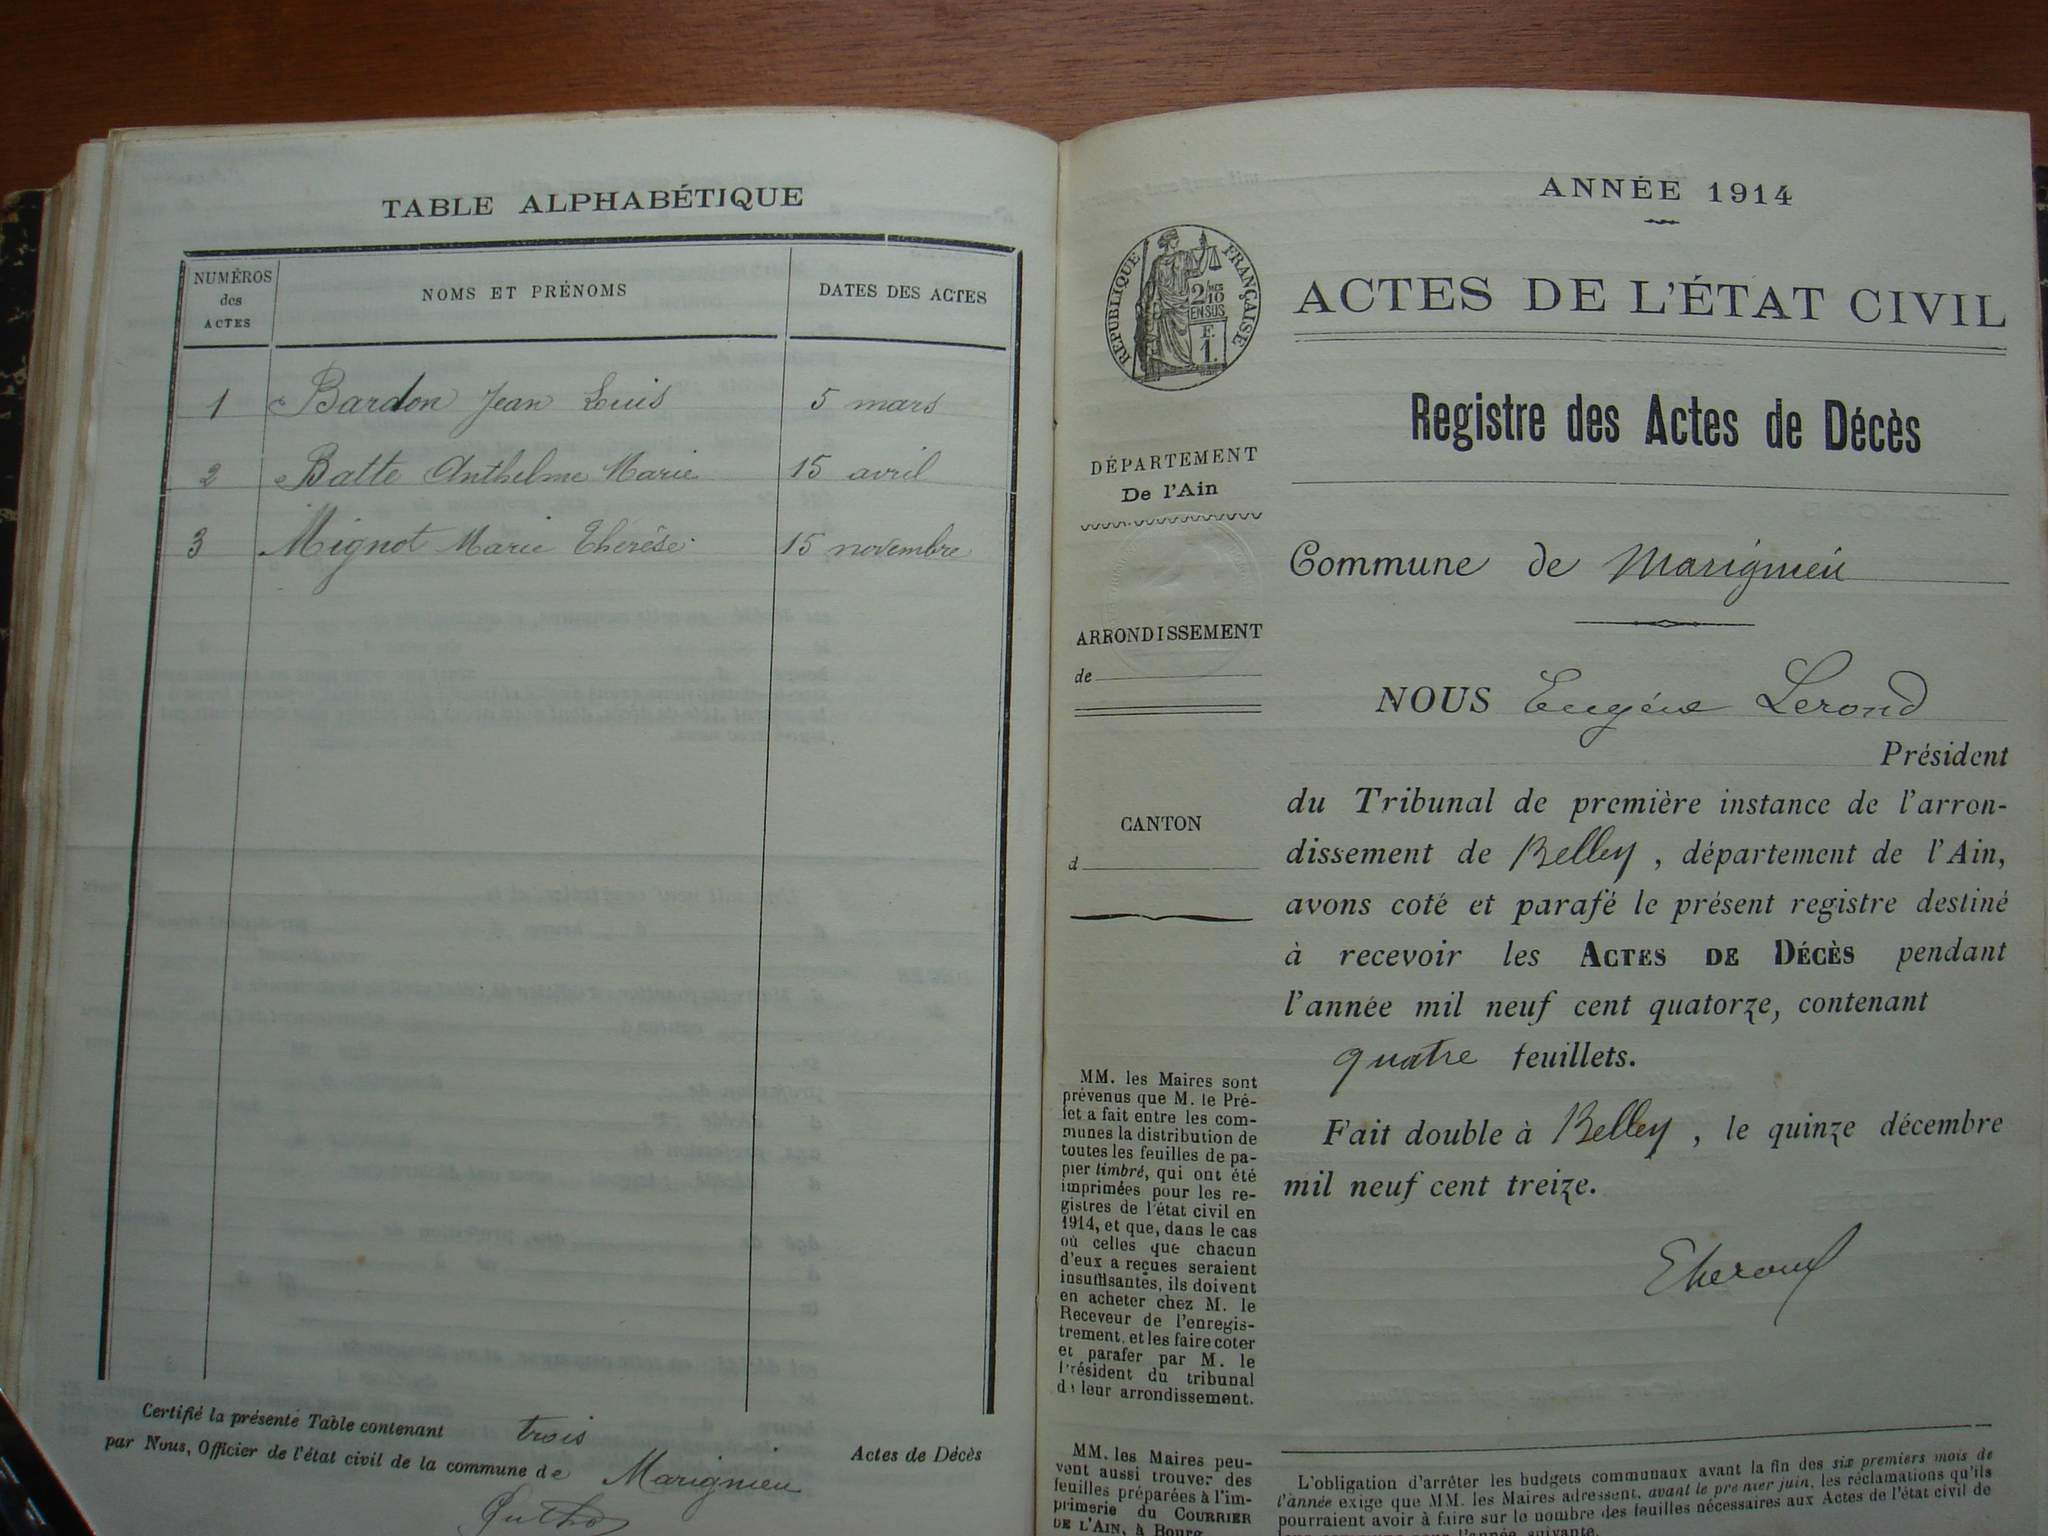 TABLE ALPHABÉTIQUE
NUMÉROS
des
ACTES
NOMS ET PRÉNOMS
DATES DES ACTES
1 Bardon Jean Louis 5 mars
2 Batte Anthelme Marie 15 avril
3 Mignot Marie Therèse 15 novembre
Certifié la présente Table contenant trois Actes de Décès
par Nous, Officier de l'état civil de la commune de Marignieu
ANNÉE 1914
RÉPUBLIQUE FRANÇAISE
2/10
EN SUS
F.
1.
ACTES DE L'ÉTAT CIVIL
Registre des Actes de Décès
DÉPARTEMENT
De l'Ain
ARRONDISSEMENT
de
CANTON
d
Commune de Marignieu
NOUS Eugène Lerond
Président
du Tribunal de première instance de l'arron-
dissement de Belley, département de l'Ain,
avons coté et parafé le présent registre destiné
à recevoir les ACTES DE DÉCÈS pendant
l'année mil neuf cent quatorze, contenant
quatre feuillets.
Fait double à Belley, le quinze décembre
mil neuf cent treize.
MM. les Maires sont
prévenus que M. le Pré-
fet a fait entre les com-
munes la distribution de
toutes les feuilles de pa-
pier timbré, qui ont été
imprimées pour les re-
gistres de l'état civil en
1914, et que, dans le cas
où celles que chacun
d'eux a reçues seraient
insuffisantes, ils doivent
en acheter chez M. le
Receveur de l'enregis-
trement, et les faire coter
et parafer par M. le
Président du tribunal
de leur arrondissement.
MM. les Maires peu-
vent aussi trouver des
feuilles préparées à l'im-
primerie du COURRIER
DE L'AIN, à Bourg
L'obligation d'arrêter les budgets communaux avant la fin des six premiers mois de
l'année exige que MM. les Maires adressent, avant le premier juin, les réclamations qu'ils
pourraient avoir à faire sur le nombre des feuilles nécessaires aux Actes de l'état civil de
l'année suivante.